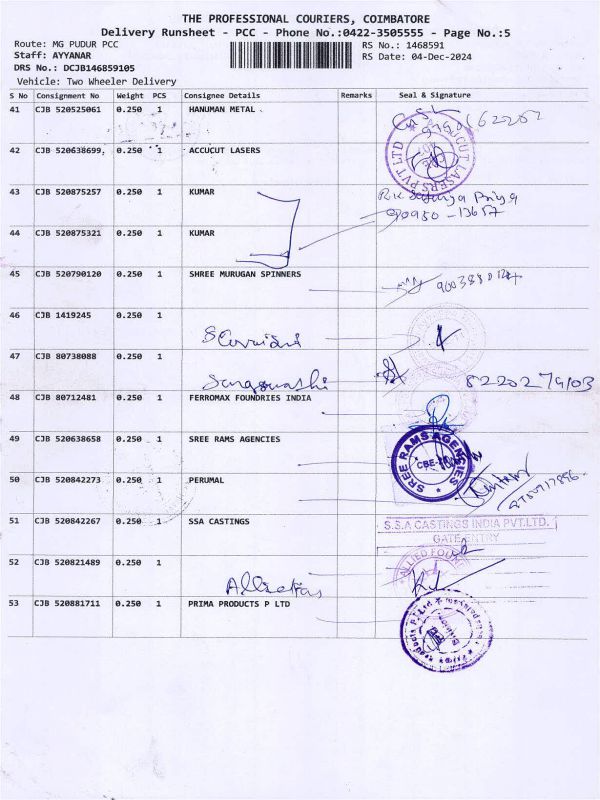 THE PROFESSIONAL COURIERS, COIMBATORE
Delivery Runsheet - PCC - Phone No.:0422-3505555 - Page No.:5
Route: MG PUDUR PCC
RS No.: 1468591
Staff: AYYANAR
RS Date: 04-Dec-2024
DRS No.: DCJB146859105
Vehicle: Two Wheeler Delivery
S No Consignment No Weight PCS Consignee Details Remarks Seal & Signature
41 CJB 520525061 0.250 1 HANUMAN METAL
42 CJB 520638699, 0.250 1 ACCUCUT LASERS
ACCUCUT LASERS PVT LTD
43 CJB 520875257 0.250 1 KUMAR
44 CJB 520875321 0.250 1 KUMAR
45 CJB 520790120 0.250 1 SHREE MURUGAN SPINNERS
46 CJB 1419245 0.250 1
47 CJB 80738088 0.250 1
8220279103
48 CJB 80712481 0.250 1 FERROMAX FOUNDRIES INDIA
49 CJB 520638658 0.250 1 SREE RAMS AGENCIES
SREE RAMS AGENCIES
50 CJB 520842273 0.250 1 PERUMAL
51 CJB 520842267 0.250 1 SSA CASTINGS
S.S.A CASTINGS INDIA PVT.LTD.
GATE ENTRY
52 CJB 520821489 0.250 1
53 CJB 520881711 0.250 1 PRIMA PRODUCTS P LTD